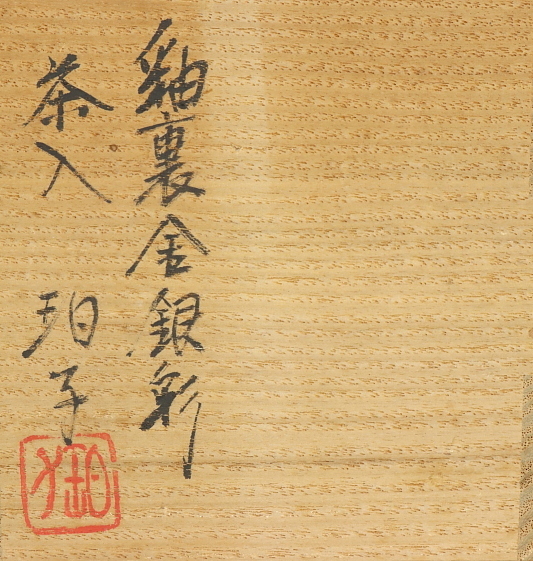 釉裏金銀彩
茶入 珀子